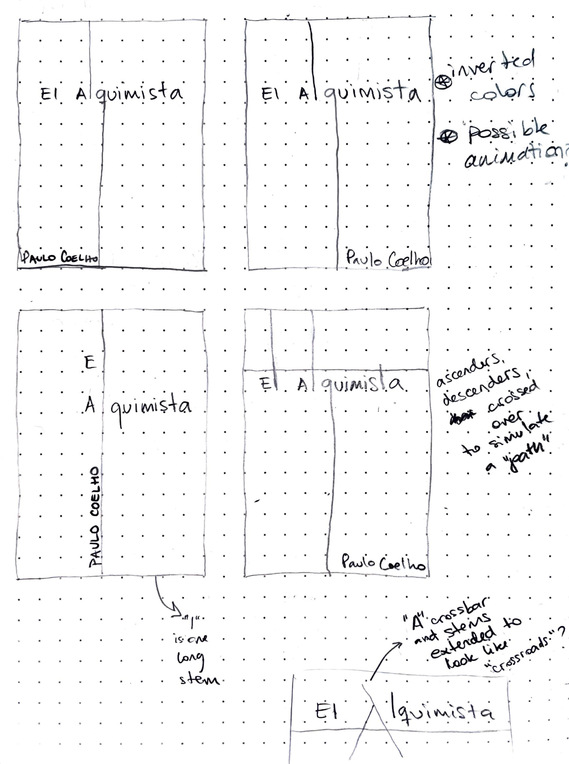 El Alquimista
PAULO COELHO
El Alquimista
Paulo Coelho
inverted
colors
possible
animation?
E
A quimista
PAULO COELHO
"l"
is one
long
stem
El Alquimista
Paulo Coelho
ascenders,
descenders,
crossed
over
to simulate
a "path"
"A" crossbar
and stems
extended to
look like
"crossroads"?
El Alquimista